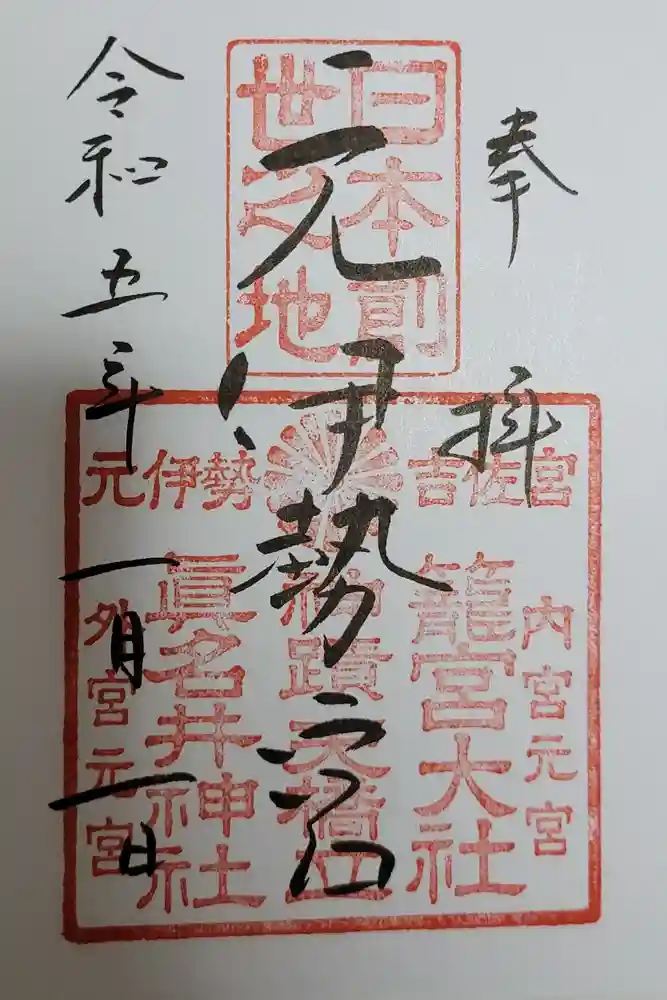 奉拝
元伊勢之宮
令和五年一月一日
日本創
世之地
吉佐宮
元伊勢
内宮元宮
籠宮大社
神蹟天橋立
眞名井神社
外宮元宮